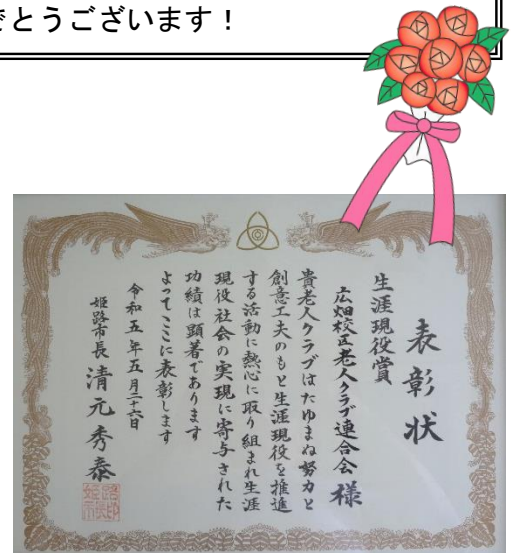 でとうございます！
表彰状
生涯現役賞
広畑校区老人クラブ連合会 様
貴老人クラブはたゆまぬ努力と
創意工夫のもと生涯現役を推進
する活動に熱心に取り組まれ生涯
現役社会の実現に寄与された
功績は顕著であります
よってここに表彰します
令和五年五月二十六日
姫路市長 清元秀泰